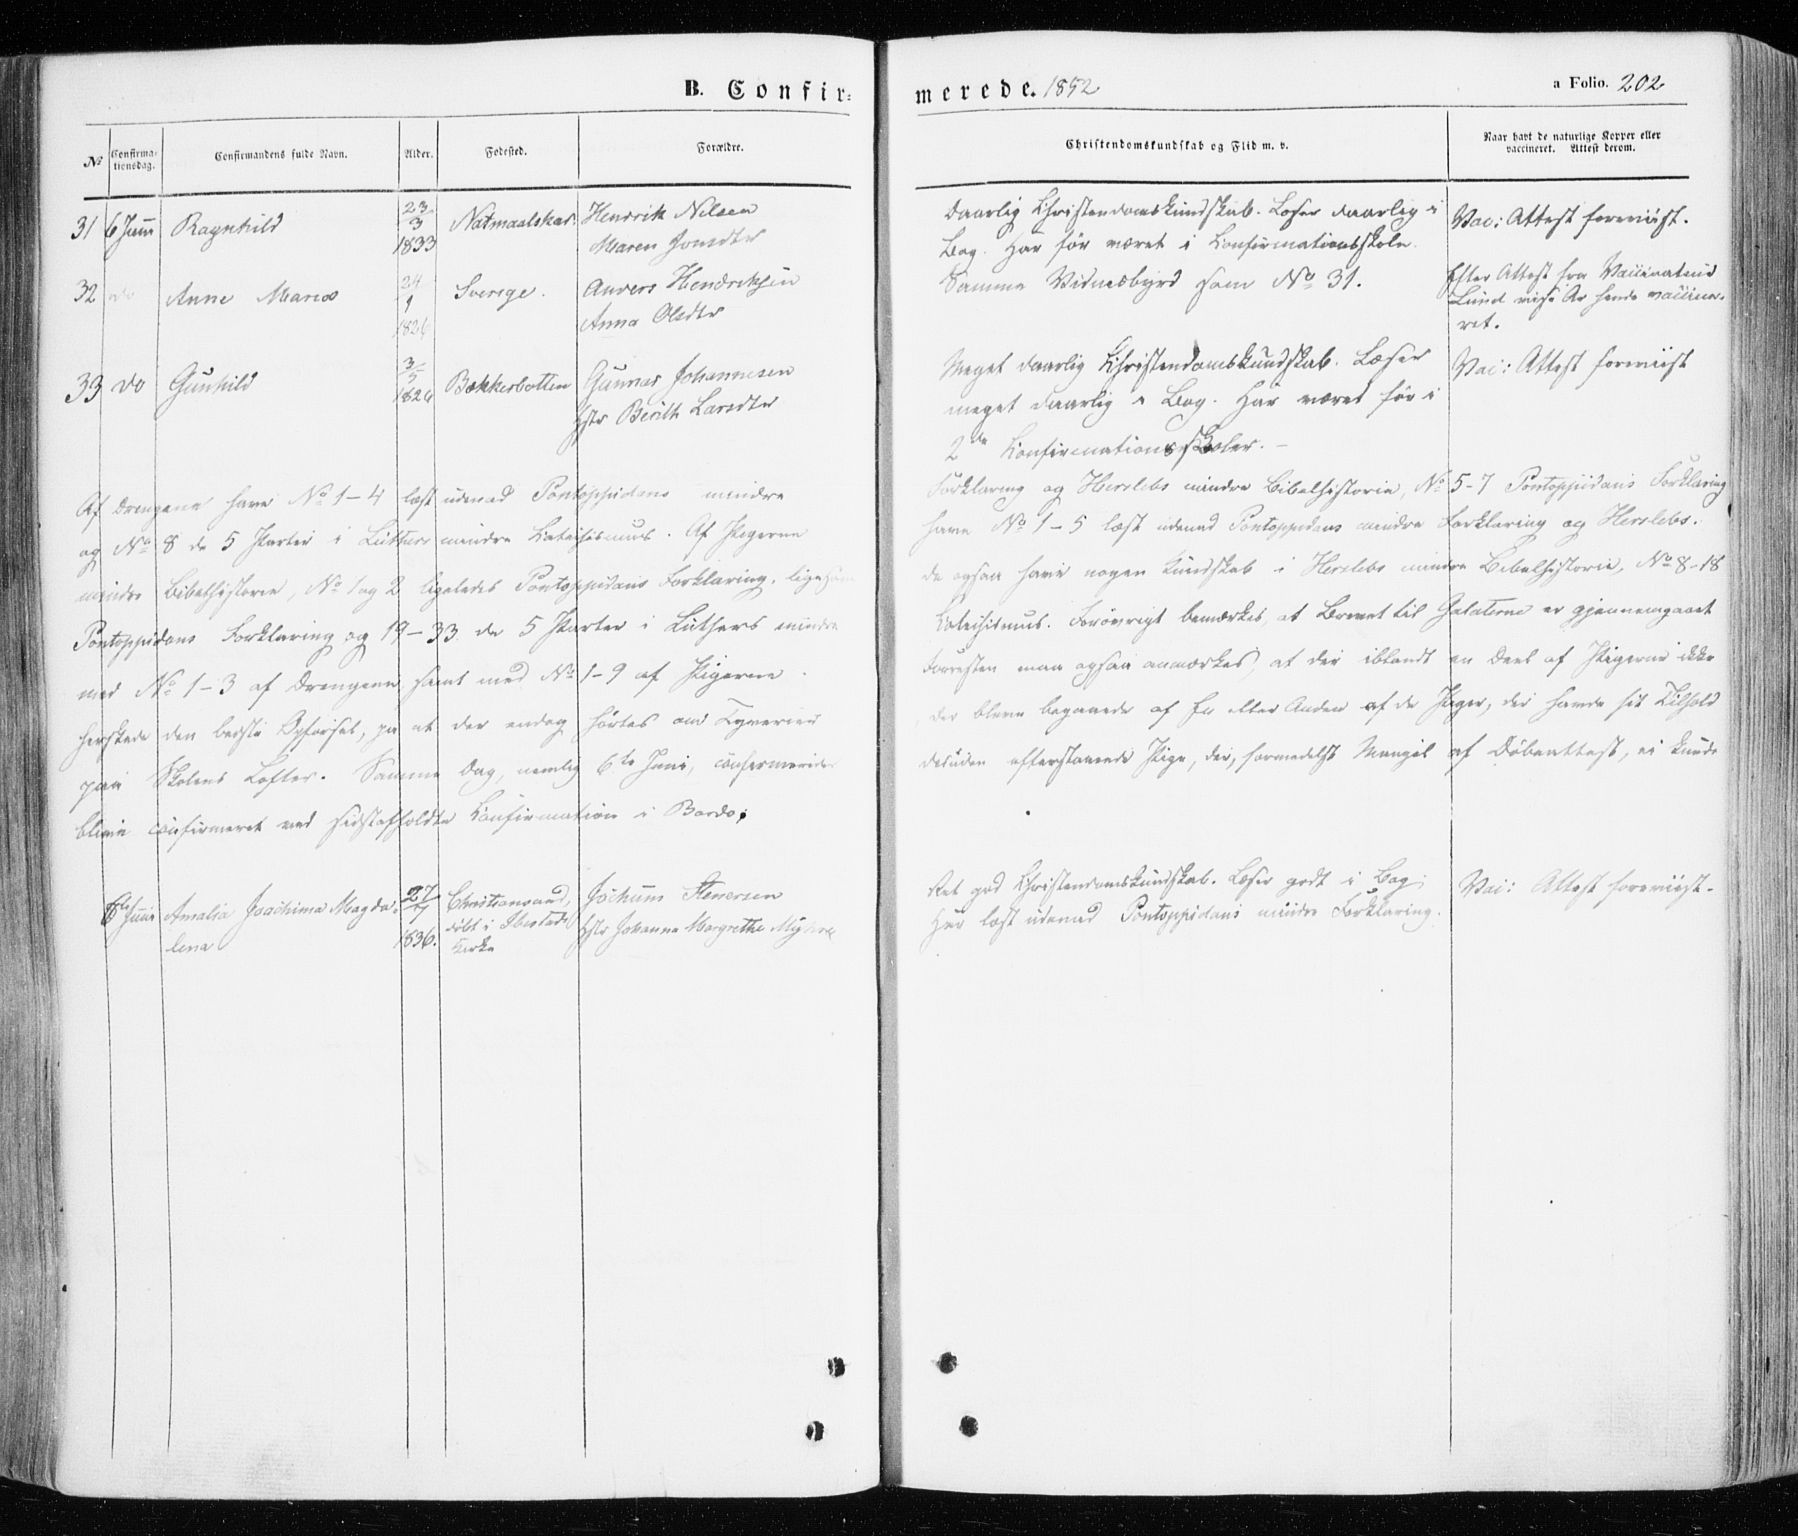 B. Confir-
merede. 1852
a Folio. 202
No
Confirma-
tionsdag.
Confirmandens fulde Navn.
Alder.
Fødested.
Forældre.
Christendomskundskab og Flid m. v.
Naar havt de naturlige Kopper eller
vaccineret. Attest derom.
31 6 Juni Ragnhild 23/3 1833 Hendrik Nilsen
Maren Jonsdtr
Daarlig Christendomskundskab. Læser daarlig i
Bog. Har før været i Confirmationsskole.
Vac: Attest foreviist.
32 do Anne Maria 24/1 1826 Sverige. Anders Hendriksen
Anna Olsdtr
Samme Vidnesbyrd som No 31.
Efter Attest fra Vaccinateur
Lund
ret.
33 do Gunhild 3/5 1826 Bækkerbotten Gunnar Johannesen
Hstr Berith Larsdtr
Meget daarlig Christendomskundskab. Læser
meget daarlig i Bog. Har været før i
2de Confirmationsskoler. –
Vac: Attest foreviist
Af Drengene have No 1-4 læst udenad Pontoppidans mindre
Forklaring og Herslebs mindre Bibelhistorie, No 5-7 Pontoppidans Forklaring
og No 8 de 5 Parter i Luthers mindre Katechismus. Af Pigerne
have No 1-5 læst udenad Pontoppidans mindre Forklaring og Herslebs
mindre Bibelhistorie, No 1 og 2 ligeledes Pontoppidans Forklaring, ligesom
de ogsaa have nogen Kundskab i Herslebs mindre Bibelhistorie, No 8-18
Pontoppidans Forklaring og 19-33 de 5 Parter i Luthers mindre
Katechismus. Forøvrigt bemærkes, at Brevet til Galaterne er gjennemgaaet
med No 1-3 af Drengene samt med No 1-9 af Pigerne.
Forresten maa ogsaa anmærkes, at der iblandt en Deel af Pigerne ikke
herskede den bedste Opførsel, ja at der endog hørtes om Tyverier
der bleve begaaede af En eller Anden af de Piger, der havde sit Tilhold
paa Skolens Lofter. Samme Dag, nemlig 6te Juni, confirmeredes
desuden efterstaaende Pige, der, formedelst Mangel af Døbeattest, ei kunde
blive confirmeret ved sidstafholdte Confirmation i Bardo:
6te Juni Amalia Joachima Magda-
lena
27/7 1836.
Christiansund,
døbt i Ibestad
Kirke
Jochum Stenersen
Hstr Johanna Margrethe Myhre
Ret god Christendomskundskab. Læser godt i Bog.
Har læst udenad Pontoppidans mindre Forklaring.
Vac: Attest foreviist.